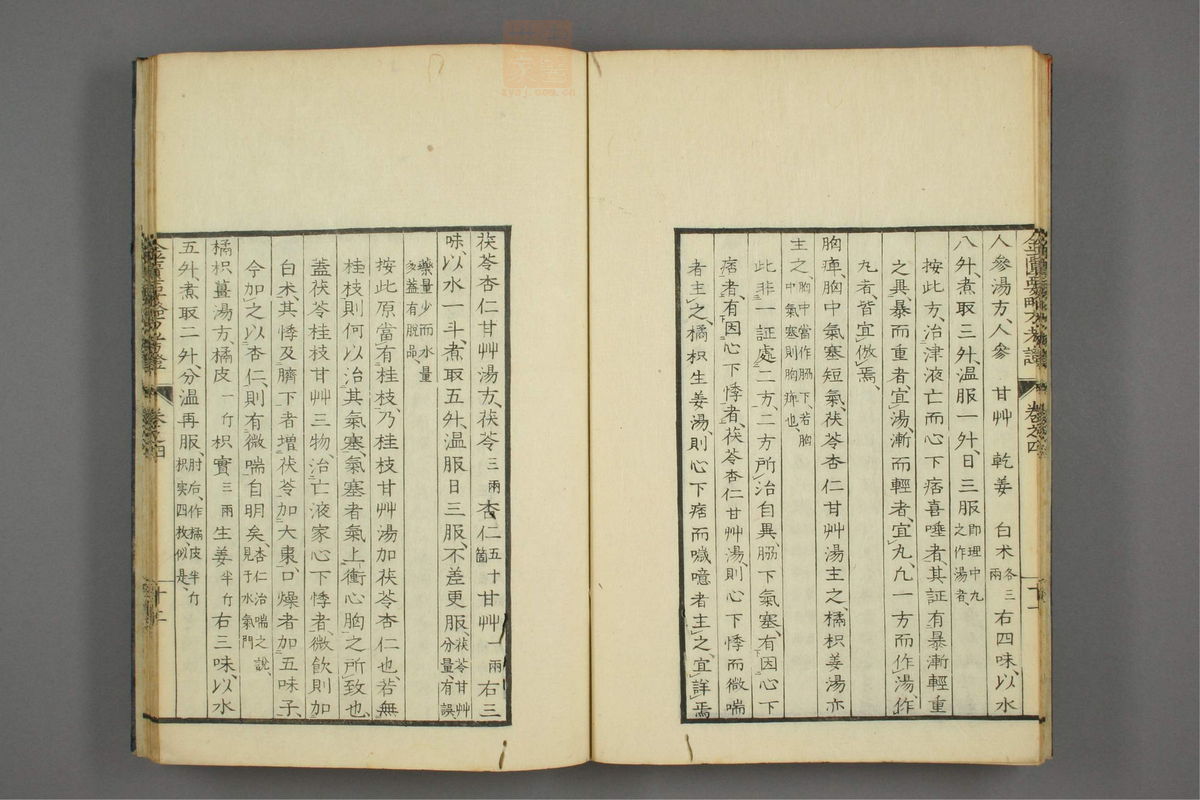 人參湯方、人參　甘艸　乾姜　白朮各三兩右四味、以水
八升、煮取三升、溫服一升、日三服即理中丸之作湯者、
按此方、治津液亡而心下痞喜唾者、其証有暴漸輕重
之異、暴而重者、宜湯、漸而輕者、宜丸、凡一方而作湯、作
丸者、皆宜倣焉、
胸痺、胸中氣塞短氣、茯苓杏仁甘艸湯主之、橘枳姜湯亦
主之、胸中當作胁下、若胸中氣塞則胸痺也、
此非一証處二方、二方所治自異、胁下氣塞、有因心下
痞者、有因心下悸者、茯苓杏仁甘艸湯、則心下悸而微喘
者主之、橘枳生姜湯、則心下痞而噦噫者主之、宜詳焉
茯苓杏仁甘艸湯方、茯苓三兩杏仁五十箇甘艸一兩右三
味、以水一斗、煮取五升、溫服日三服、不差更服、茯苓甘艸分量、有誤
藥量少而水量多蓋有脫品、
按此原當有桂枝、乃桂枝甘艸湯加茯苓杏仁也、若無
桂枝則何以治其氣塞、氣塞者氣上衝心胸之所致也、
蓋茯苓桂枝甘艸三物、治亡液家心下悸者、微飲則加
白朮、其悸及臍下者增茯苓、加大棗、口燥者加五味子、
今加之以杏仁、則有微喘自明矣、杏仁治喘之說、見于水氣門
橘枳薑湯方、橘皮一斤枳實三兩生姜半斤右三味、以水
五升、煮取二升、分溫再服、肘后、作橘皮半斤枳実四枚、似是、
卷之四
十一
卷之四
十二